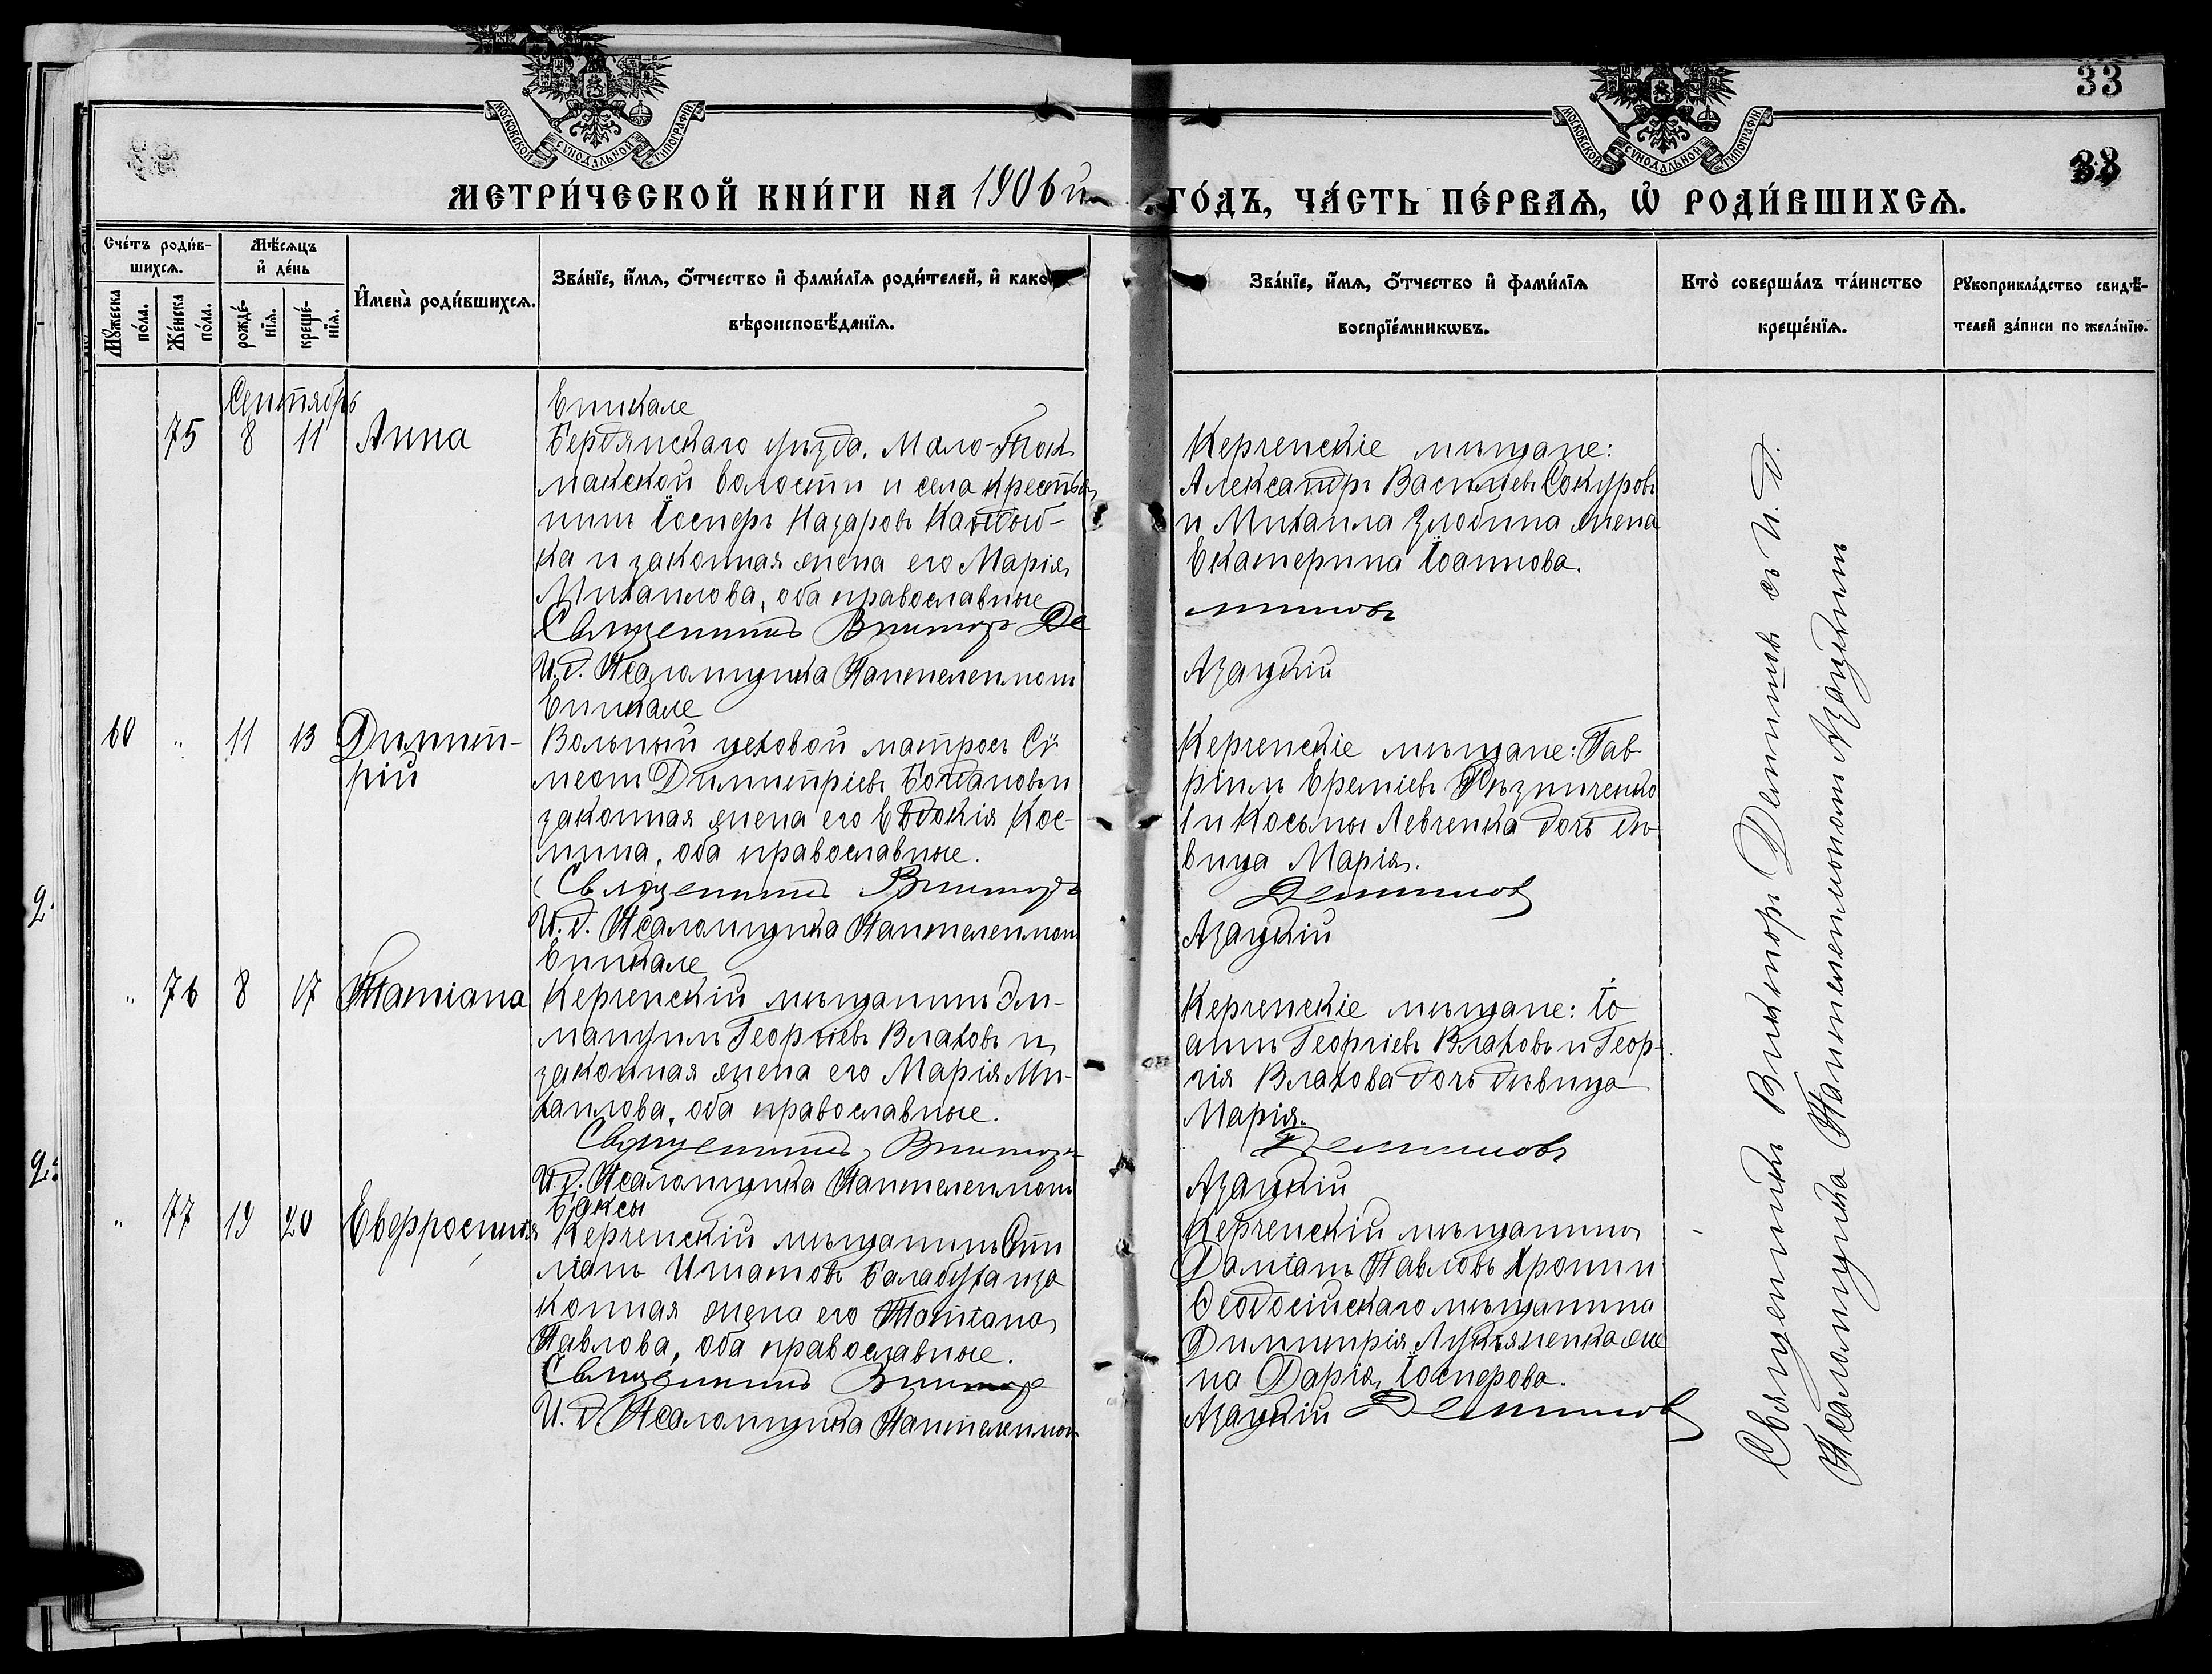 33
33
МОСКОВСКОЙ СѴНОДАЛЬНОЙ ТИПОГРАФІИ
МОСКОВСКОЙ СѴНОДАЛЬНОЙ ТИПОГРАФІИ
МЕТРИ́ЧЕСКОЙ КНИ́ГИ НА 1906й ГО́ДЪ, ЧА́СТЬ ПЕ́РВАѦ, Ѡ РОДИ́ВШИХСѦ.
Сче́тъ роди́в-
шихсѧ.
Мѣ́сѧцъ
и҆ де́нь
Мꙋжеска
по́ла.
Же́нска
по́ла.
рожде́-
нїѧ.
креще́-
нїѧ.
И҆мена̀ роди́вшихсѧ.
Зва́нїе, и҆́мѧ, ѻ҆́тчество и҆ фами́лїѧ роди́телей, и҆ како
вѣроисповѣ́данїѧ.
Зва́нїе, и҆́мѧ, ѻ҆́тчество и҆ фами́лїѧ
воспрїе́мникѡвъ.
Кто̀ соверша́лъ та́инство
креще́нїѧ.
Рꙋкоприкла́дство свидѣ́-
телей за́писи по жела́нїю.
Сентябрь
75 8 11 Анна
Еникале
Бердянскаго уѣзда, Мало-Ток
макской волости и села крестья
нинъ Іосифъ Назаровъ
ка и законная жена его Марія
Михаилова, оба православные
Священникъ Викторъ Де
И. д. Псаломщика Пантелеимонъ
Керченскіе мѣщане:
Александръ Васильевъ Сокуровъ
и Михаила Злобина жена
Екатерина Іоаннова.
миновъ
Азацкій
60 " 11 13 Димит-
рій
Еникале
Вольный цеховой матросъ Сѵ
меонъ Димитріевъ Богдановъ и
законная жена его Евдокія Кос-
мина, оба православные.
Священникъ Викторъ
И. д. Псаломщика Пантелеимон
Керченскіе мѣщане: Гав
ріилъ Ереміевъ Рѣзниченко
и Косьмы Левченка дочь дѣ
вица Марія.
Деминов
Азацкій
" 76 8 17 Татіана
Еникале
Керченскій мѣщанинъ Эм-
мануилъ Георгіевъ Влаховъ и
законная жена его Марія Ми-
хаилова, оба православные.
Священникъ Викторъ
И. д. Псаломщика Пантелеимонъ
Керченскіе мѣщане: Іо
аннъ Георгіевъ Влаховъ и Геор-
гія Влахова дочь дѣвица
Марія.
Деминовъ
Азацкій
" 77 19 20 Евфросинія
Баксы
Керченскій мѣщанинъ
Игнатовъ Балабуха и за
конная жена его Татіана
Павлова, оба православные.
Священникъ Викторъ
И. д. Псаломщика Пантелеимон
Керченскій мѣщанинъ
Даміанъ Павловъ Хронъ и
Ѳеодосійскаго мѣщанина
Димитрія Лукьяненка же
на Дарія Іосифова.
Азацкій Деминов
Священникъ Викторъ Деминовъ съ И. Д.
Псаломщика Пантелеимономъ Азацкимъ
2.
2.